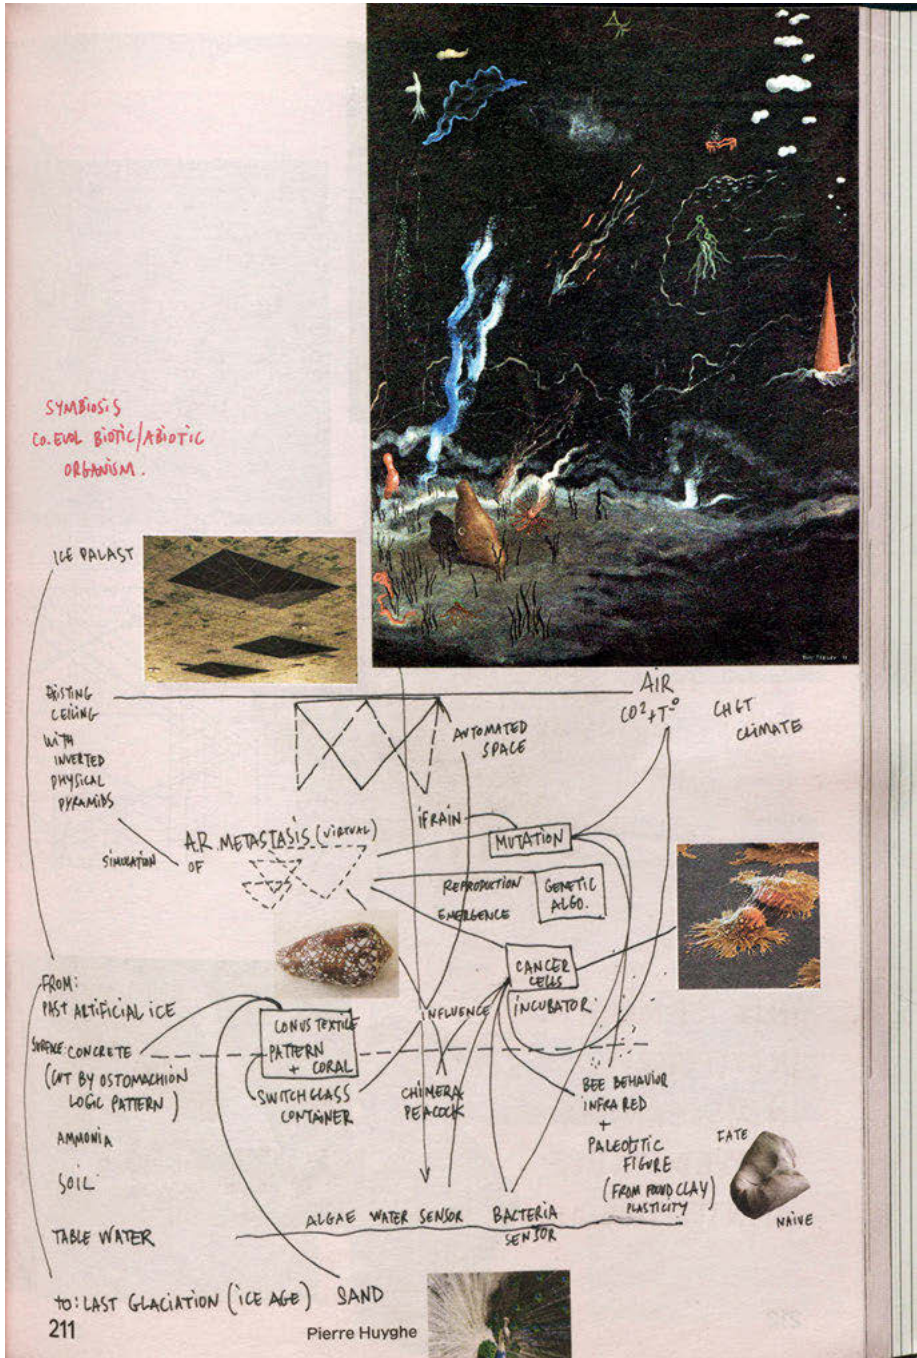 SYMBIOSIS
CO.EVOL BIOTIC/ABIOTIC
ORGANISM.
ICE PALAST
EXISTING
CEILING
WITH
INVERTED
PHYSICAL
PYRAMIDS
AIR
CO²+T°
CHGT
CLIMATE
AUTOMATED
SPACE
SIMULATION
A.R. METASTASIS (VIRTUAL)
OF
IFRAIN
MUTATION
REPRODUCTION
EMERGENCE
GENETIC
ALGO.
CANCER
CELLS
INCUBATOR
INFLUENCE
FROM:
PAST ARTIFICIAL ICE
SURFACE: CONCRETE
(CUT BY OSTOMACHION
LOGIC PATTERN)
AMMONIA
SOIL
TABLE WATER
CONUS TEXTILE
PATTERN
+ CORAL
SWITCHGLASS
CONTAINER
CHIMERA
PEACOCK
BEE BEHAVIOR
INFRARED
+
PALEOLITIC
FIGURE
(FROM FOUND CLAY)
PLASTICITY
FATE
NAIVE
ALGAE WATER SENSOR
BACTERIA
SENSOR
TO: LAST GLACIATION (ICE AGE)
SAND
211
Pierre Huyghe